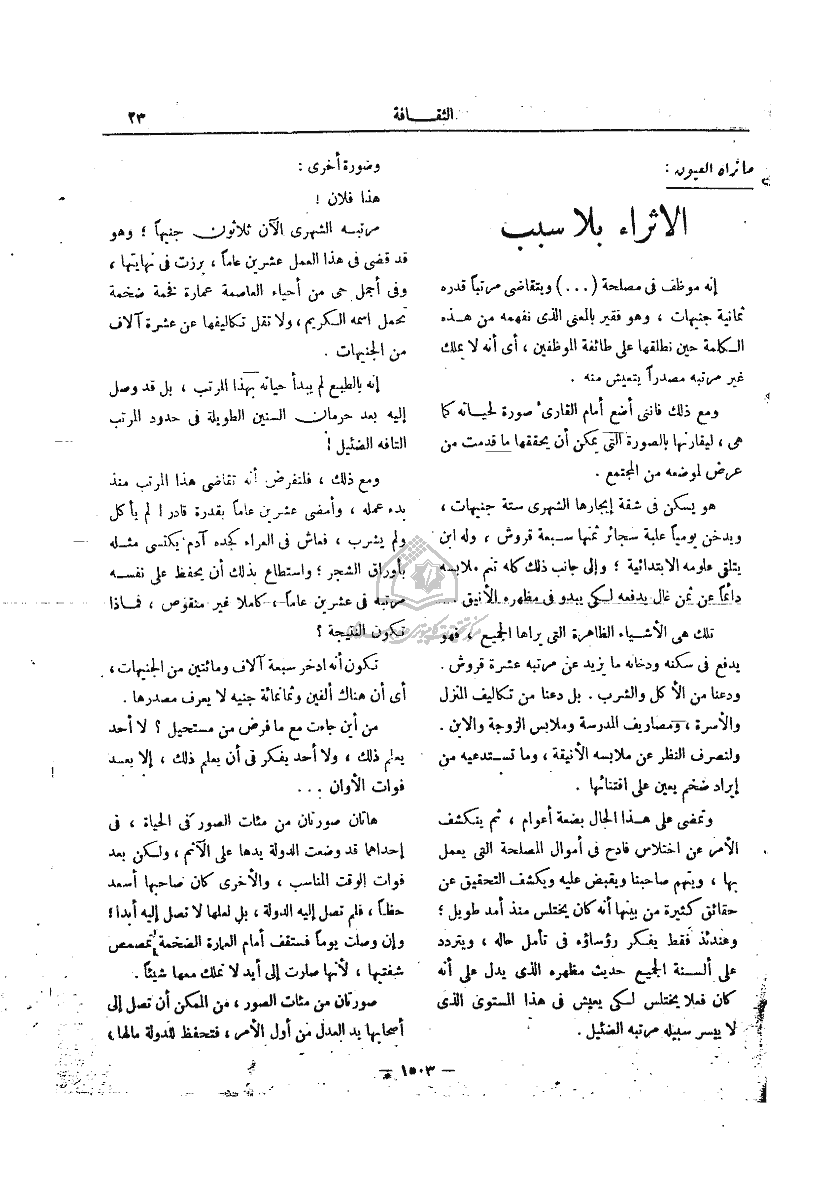 الثقافة
٢٣
ما تراه العيون :
الاثراء بلا سبب
إنه موظف فى مصلحة (...) ويتقاضى مرتباً قدره
ثمانية جنيهات ، وهو فقير بالمعنى الذى نفهمه من هذه
الكلمة حين نطلقها على طائفة الموظفين ، أى أنه لا يملك
غير مرتبه مصدراً يتعيش منه .
ومع ذلك فانى أضع أمام القارئ صورة لحياته كما
هى ، ليقارنها بالصورة التى يمكن أن يحققها ما قدمت من
عرض لموضعه من المجتمع .
هو يسكن فى شقة إيجارها الشهرى ستة جنيهات ،
ويدخن يومياً علبة سجائر ثمنها سبعة قروش ، وله ابن
يتلقى علومه الابتدائية ؛ وإلى جانب ذلك كله تنم ملابسه
دائماً عن ثمن غال يدفعه لكى يبدو فى مظهره الأنيق ...
تلك هى الأشياء الظاهرة التى يراها الجميع ، فهو
يدفع فى سكنه ودخانه ما يزيد عن مرتبه عشرة قروش .
ودعنا من الأكل والشرب . بل دعنا من تكاليف المنزل
والأسرة ، ومصاريف المدرسة وملابس الزوجة والابن .
ولنصرف النظر عن ملابسه الأنيقة ، وما تستدعيه من
إيراد ضخم يعين على اقتنائها .
وتمضى على هذا الحال بضعة أعوام ، ثم ينكشف
الأمر عن اختلاس فادح فى أموال المصلحة التى يعمل
بها ، ويتهم صاحبنا ويقبض عليه ويكشف التحقيق عن
حقائق كثيرة من بينها أنه كان يختلس منذ أمد طويل ؛
وعندئذ فقط يفكر رؤساؤه فى تأمل حاله ، ويتردد
على ألسنة الجميع حديث مظهره الذى يدل على أنه
كان فعلا يختلس لكى يعيش فى هذا المستوى الذى
لا ييسر سبيله مرتبه الضئيل .
وصورة أخرى :
هذا فلان !
مرتبه الشهرى الآن ثلاثون جنيهاً ؛ وهو
قد قضى فى هذا العمل عشرين عاماً ، برزت فى نهايتها ،
وفى أجمل حى من أحياء العاصمة عمارة فخمة ضخمة
تحمل اسمه الكريم ، ولا تقل تكاليفها عن عشرة آلاف
من الجنيهات .
إنه بالطبع لم يبدأ حياته بهذا المرتب ، بل قد وصل
إليه بعد حرمان السنين الطويلة فى حدود المرتب
التافه الضئيل !
ومع ذلك ، فلنفرض أنه تقاضى هذا المرتب منذ
بدء عمله ، وأمضى عشرين عاماً بقدرة قادر ! لم يأكل
ولم يشرب ، فعاش فى العراء كجده آدم يكتسى مثله
بأوراق الشجر ؛ واستطاع بذلك أن يحفظ على نفسه
مرتبه فى عشرين عاماً ، كاملا غير منقوص ، فماذا
تكون النتيجة ؟
تكون أنه ادخر سبعة آلاف ومائتين من الجنيهات ،
أى أن هناك ألفين وثمانمائة جنيه لا يعرف مصدرها .
من أين جاءت مع ما فرض من مستحيل ؟ لا أحد
يعلم ذلك ، ولا أحد يفكر فى أن يعلم ذلك ، إلا بعد
فوات الأوان ...
هاتان صورتان من مئات الصور فى الحياة ، فى
إحداها قد وضعت الدولة يدها على الآثم ، ولكن بعد
فوات الوقت المناسب ، والأخرى كان صاحبها أسعد
حظاً ، فلم تصل إليه الدولة ، بل لعلها لا تصل إليه أبدا ؛
وإن وصلت يوماً فستقف أمام العمارة الضخمة تمصمص
شفتيها ، لأنها صارت إلى أيد لا تملك معها شيئاً .
صورتان من مئات الصور ، من الممكن أن تصل إلى
أصحابها يد العدل من أول الأمر ، فتحفظ للدولة مالها ،
— ١٥٠٣ —